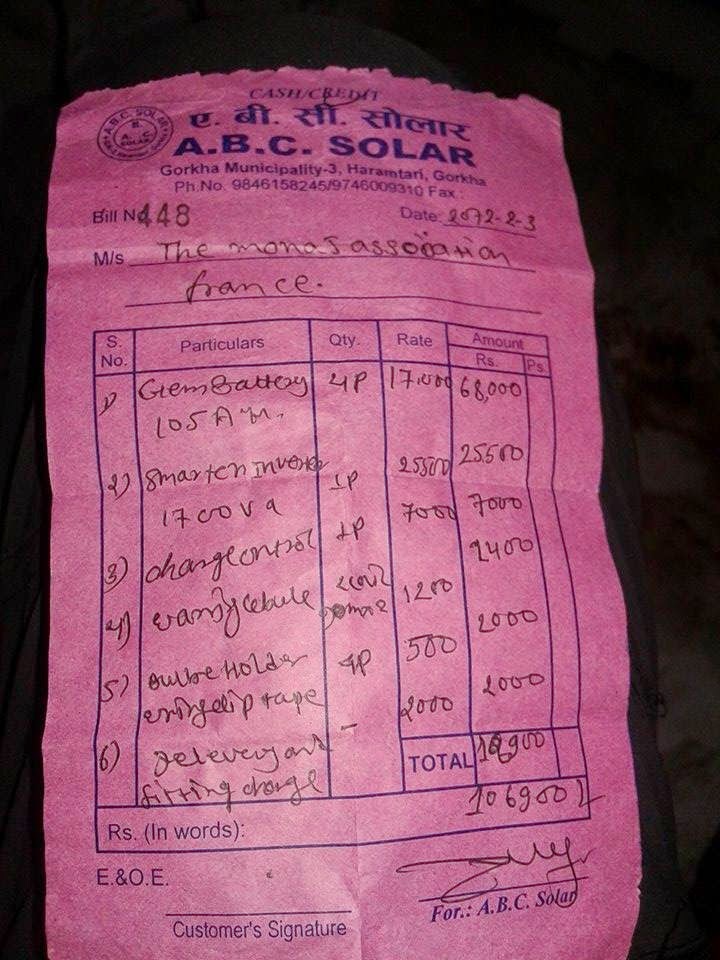 CASH/CREDIT
ए. बी. सी. सोलार
A.B.C. SOLAR
Gorkha Municipality-3, Haramtari, Gorkha
Ph.No. 9846158245/9746009310 Fax :
Bill No 448
Date: 2072-2-3
M/s The monas association
france.
S. No. Particulars Qty. Rate Amount Rs. Ps.
1) Gem Battery 4P 17,000 68,000
105 A
2) Smarten Inverter 1P 25500 25500
1700 va
3) charge control 1P 7000 7000
4) 1200 2400
5) Bulbe Holder 4P 500 2000
clip tape
6) Delevery and - 2000 2000
fitting charge
TOTAL
106900/-
Rs. (In words):
E.&O.E.
Customer's Signature
For.: A.B.C. Solar